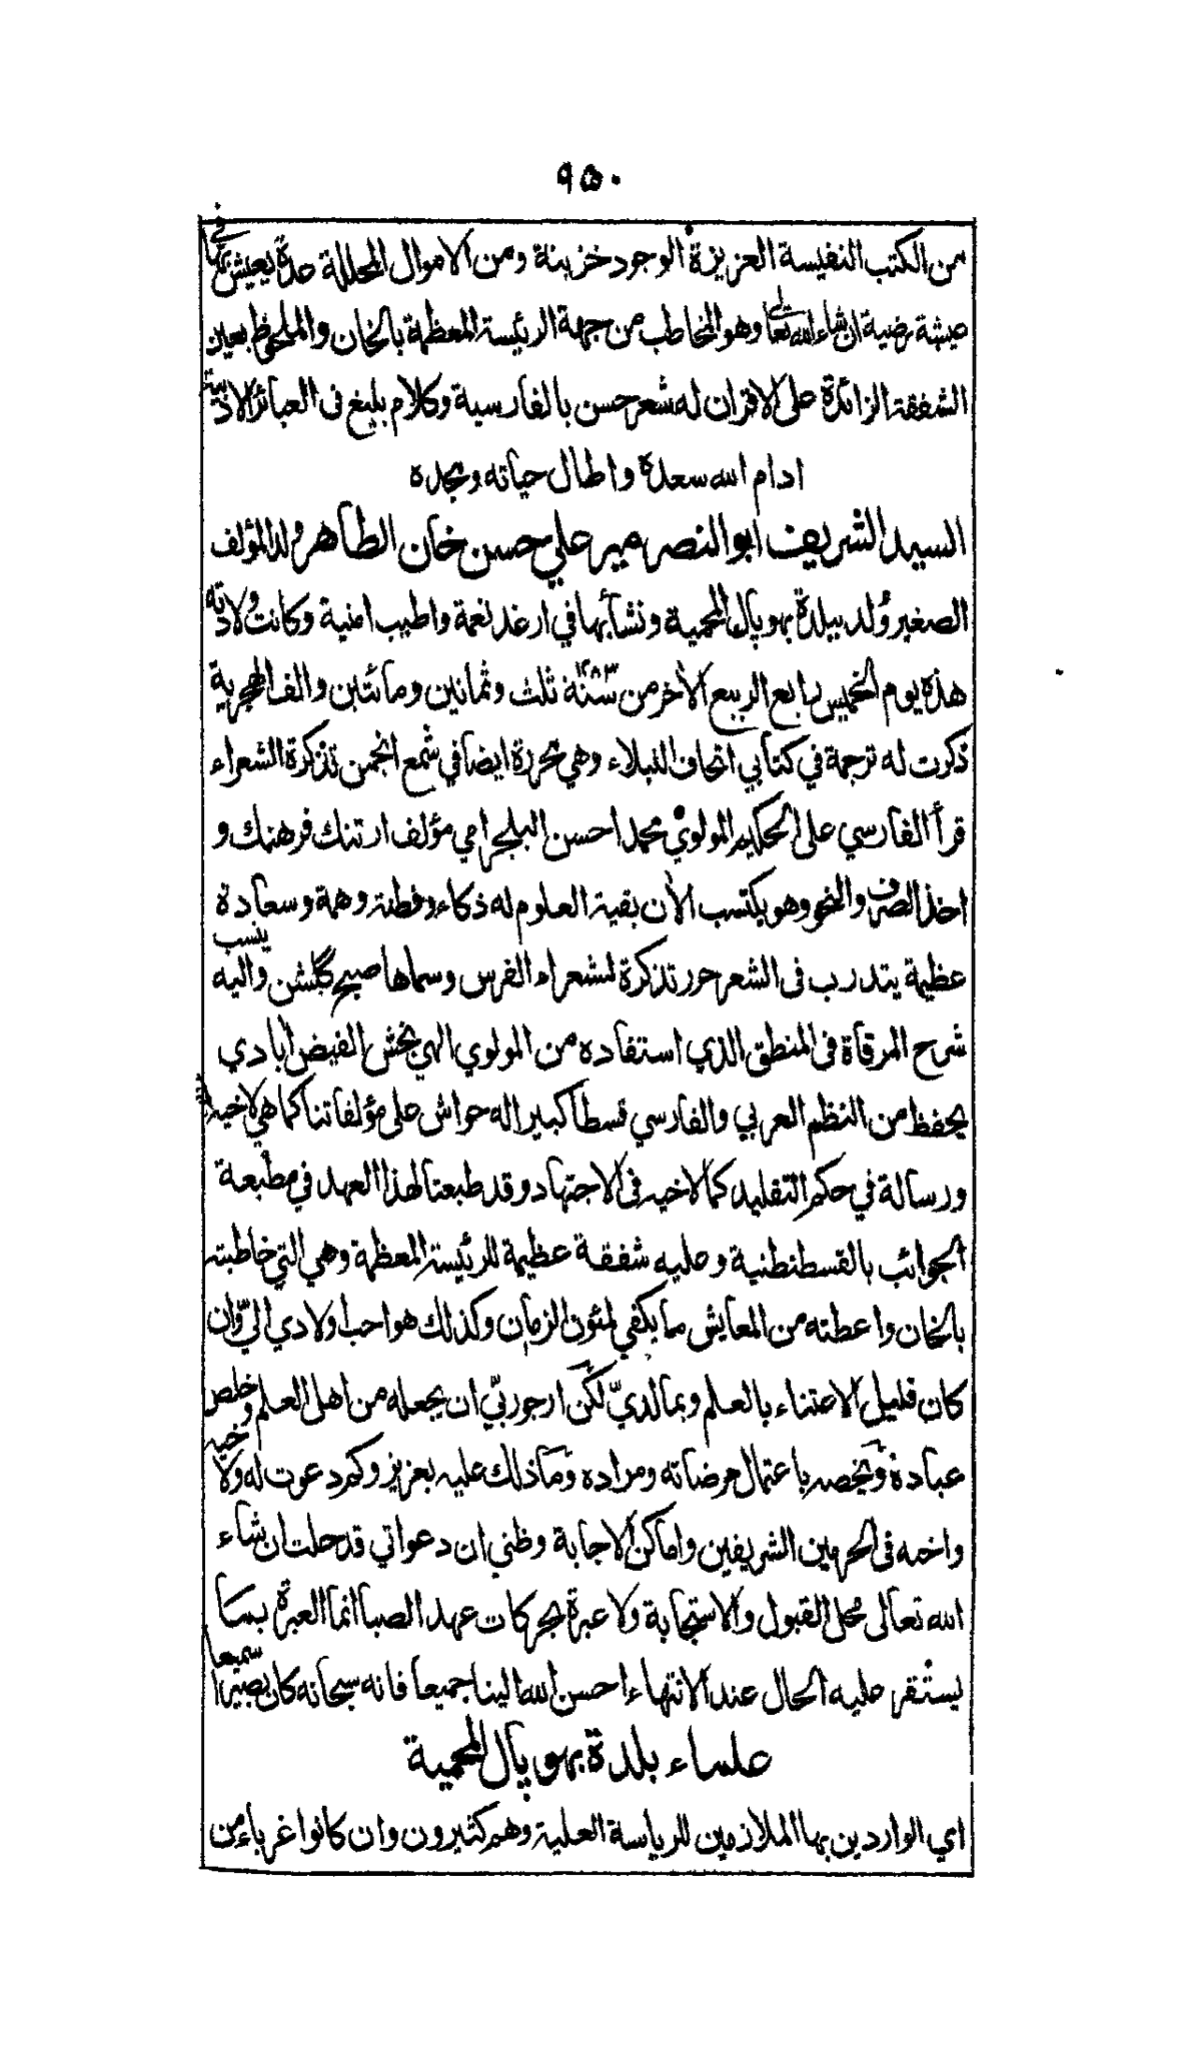 ٩٥٠
من الكتب النفيسة العزيزة الوجود خزينة ومن الاموال المحللة عدة يعيش بها في
عيشة رضية ان شاء الله تعالى وهو المخاطب من جهة الرئيسة المعظمة بالخان والملحوظ بعين
الشفقة الزائدة على الاقران له شعر حسن بالفارسية وكلام بليغ فى العبائر الادبية
ادام الله سعده واطال حياته ومجده
السيد الشريف ابو النصر مير علي حسن خان الطاهر ولد المؤلف
الصغير وُلد ببلدة بهوپال المحمية ونشأ بها في ارغد نعمة واطيب امنية وكانت ولادته
هذه يوم الخميس رابع الربيع الأخر من سنة ١٢٨٣ ثلث وثمانين ومائتين والف الهجرية
ذكرت له ترجمة في كتابي اتحاف النبلاء وهي محررة ايضا في شمع انجمن تذكرة الشعراء
قرأ الفارسي على الحكيم المولوي محمد احسن البلجرامي مؤلف ارتنك فرهنك و
اخذ الصرف والنحو وهو يكتسب الأن بقية العلوم له ذكاء وفطنة وهمة وسعادة
عظيمة يتدرب فى الشعر حرر تذكرة لشعراء الفرس وسماها صبح گلشن واليه ينسب
شرح المرقاة فى المنطق الذي استفاده من المولوي الهي بخش الفيض أبادي
يحفظ من النظم العربي والفارسي قسطا كبيرا له حواش على مؤلفاتنا كما هي لاخيه
ورسالة في حكم التقليد كما لاخيه فى الاجتهاد وقد طبعتا لهذا العهد في مطبعة
الجوائب بالقسطنطنية وعليه شفقة عظيمة للرئيسة المعظمة وهي التي خاطبته
بالخان واعطته من المعايش ما يكفي لمئون الزمان وكذلك هو احب اولادي اليّ وان
كان قليل الاعتناء بالعلم وبما لديّ لكن ارجو ربّي ان يجعله من اهل العلم وخلص
عباده ويخصه باعتمال مرضاته ومراده وما ذلك عليه بعزيز وكم دعوت له ولاخيه
واخته فى الحرمين الشريفين واماكن الاجابة وظني ان دعواتي قد حلت ان شاء
الله تعالى محل القبول والاستجابة ولا عبرة بحركات عهد الصبا انما العبرة بما
يستقر عليه الحال عند الانتهاء احسن الله الينا جميعا فانه سبحانه كان سميعا بصيرا
علماء بلدة بهوپال المحمية
اي الواردين بها الملازمين للرياسة العلية وهم كثيرون وان كانوا غرباء من